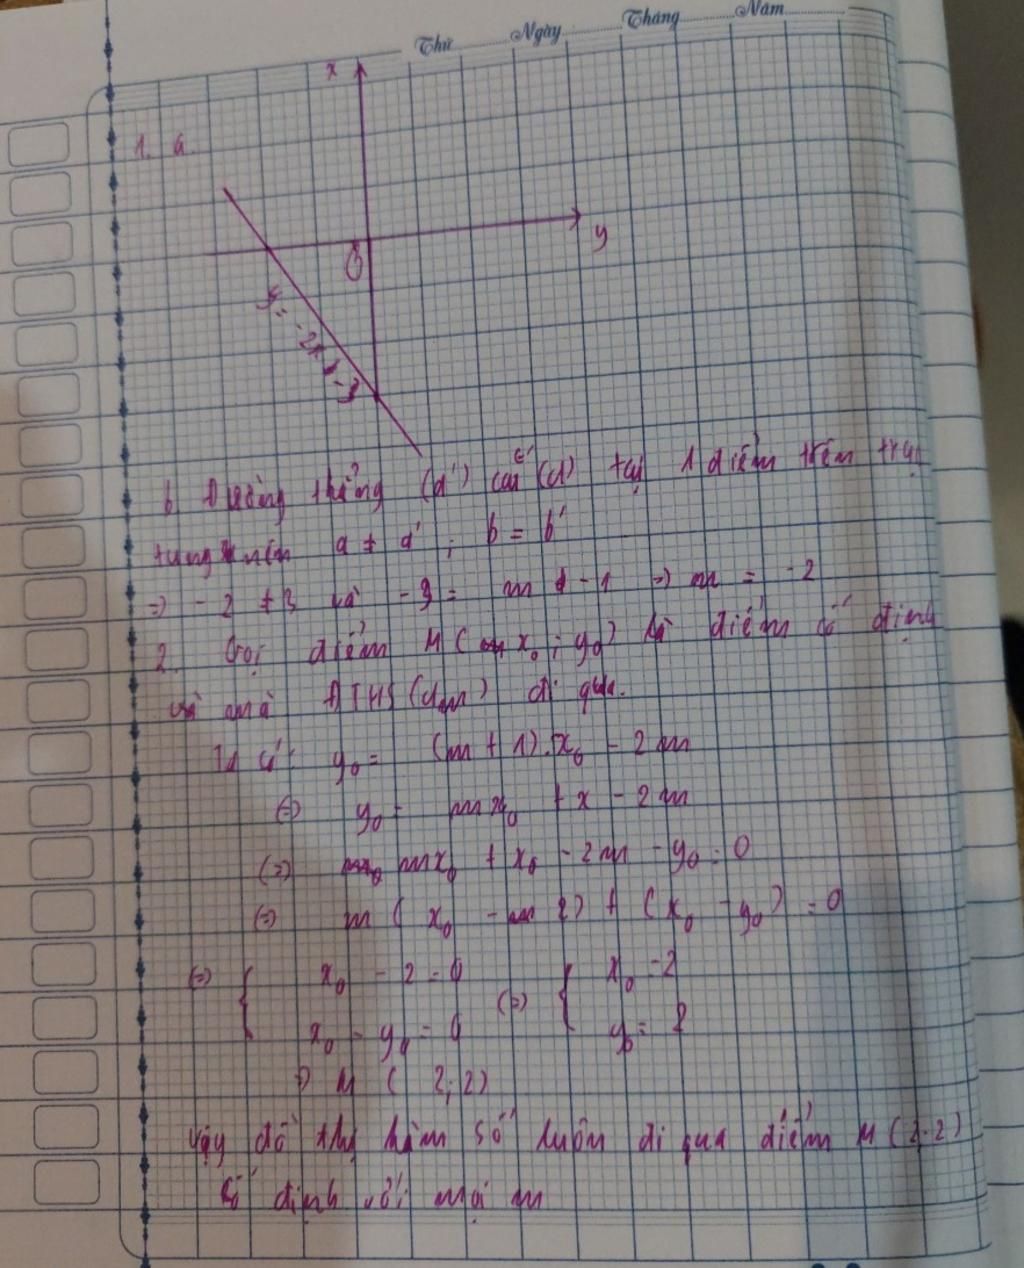 Thứ Ngày Tháng Năm
x
1. a.
y
O
y = -2x - 3
b. Đường thẳng (d') cắt (d) tại 1 điểm trên trục
tung nên a ≠ a' ; b = b'
=> -2 ≠ 3 và -3 = m - 1 => m = -2
2. Gọi điểm M ( x₀ ; y₀) là điểm cố định
mà ĐTHS (dm) đi qua.
Ta có: y₀ = (m + 1).x₀ - 2m
(=) y₀ = mx₀ + x - 2m
(=) mx₀ + x₀ - 2m - y₀ = 0
(=) m ( x₀ - 2) + (x₀ - y₀) = 0
(=) { x₀ - 2 = 0 (=) { x₀ = 2
x₀ - y₀ = 0 y₀ = 2
=) M ( 2; 2)
Vậy đồ thị hàm số luôn đi qua điểm M (2;2)
cố định với mọi m